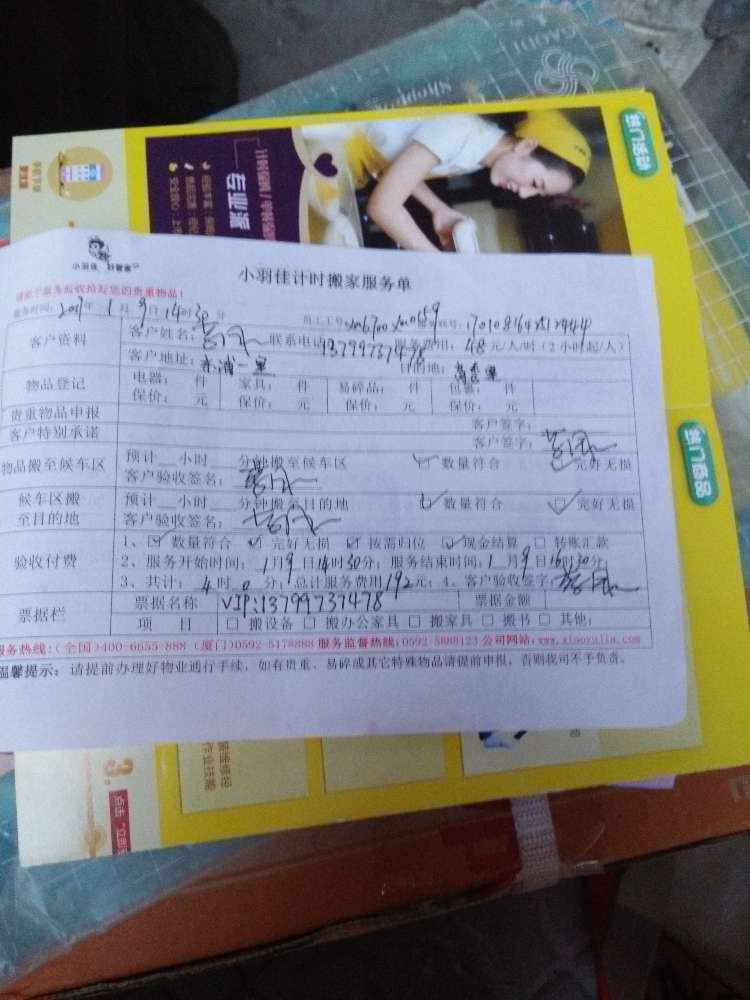 热门活动
专业派
小羽佳 好管家
小羽佳计时搬家服务单
服务时间：2017年 1月 9日 14时30分
客户资料
客户姓名： 联系电话：13799737478 服务费用：48元/人/时（2小时起/人）
客户地址： 浦一里 目的地：
物品登记
电器： 件 家具： 件 易碎品： 件 包裹： 件
保价： 元 保价： 元 保价： 元 保价： 元
贵重物品申报 客户签字：
客户特别承诺 客户签字：
物品搬至候车区
预计__小时__分钟搬至候车区 数量符合 完好无损
客户验收签名：
候车区搬至目的地
预计__小时__分钟搬至目的地 数量符合 完好无损
客户验收签名：
验收付费
1、 数量符合 完好无损 按需归位 现金结算 转账汇款
2、服务开始时间：1月9日14时30分；服务结束时间：1月9日16时30分；
3、共计：4时0分；总计服务费用192元；4、客户验收签字
票据栏
票据名称 VIP:13799737478 票据金额
项 目 搬设备 搬办公家具 搬家具 搬书 其他：
服务热线：(全国)400-6655-888 (厦门)0592-5178888 服务监督热线：0592-5888123 公司网站：www.xiaoyujia.com
温馨提示：请提前办理好物业通行手续，如有贵重、易碎或其它特殊物品请提前申报，否则我司不予负责。
热门商品
3.